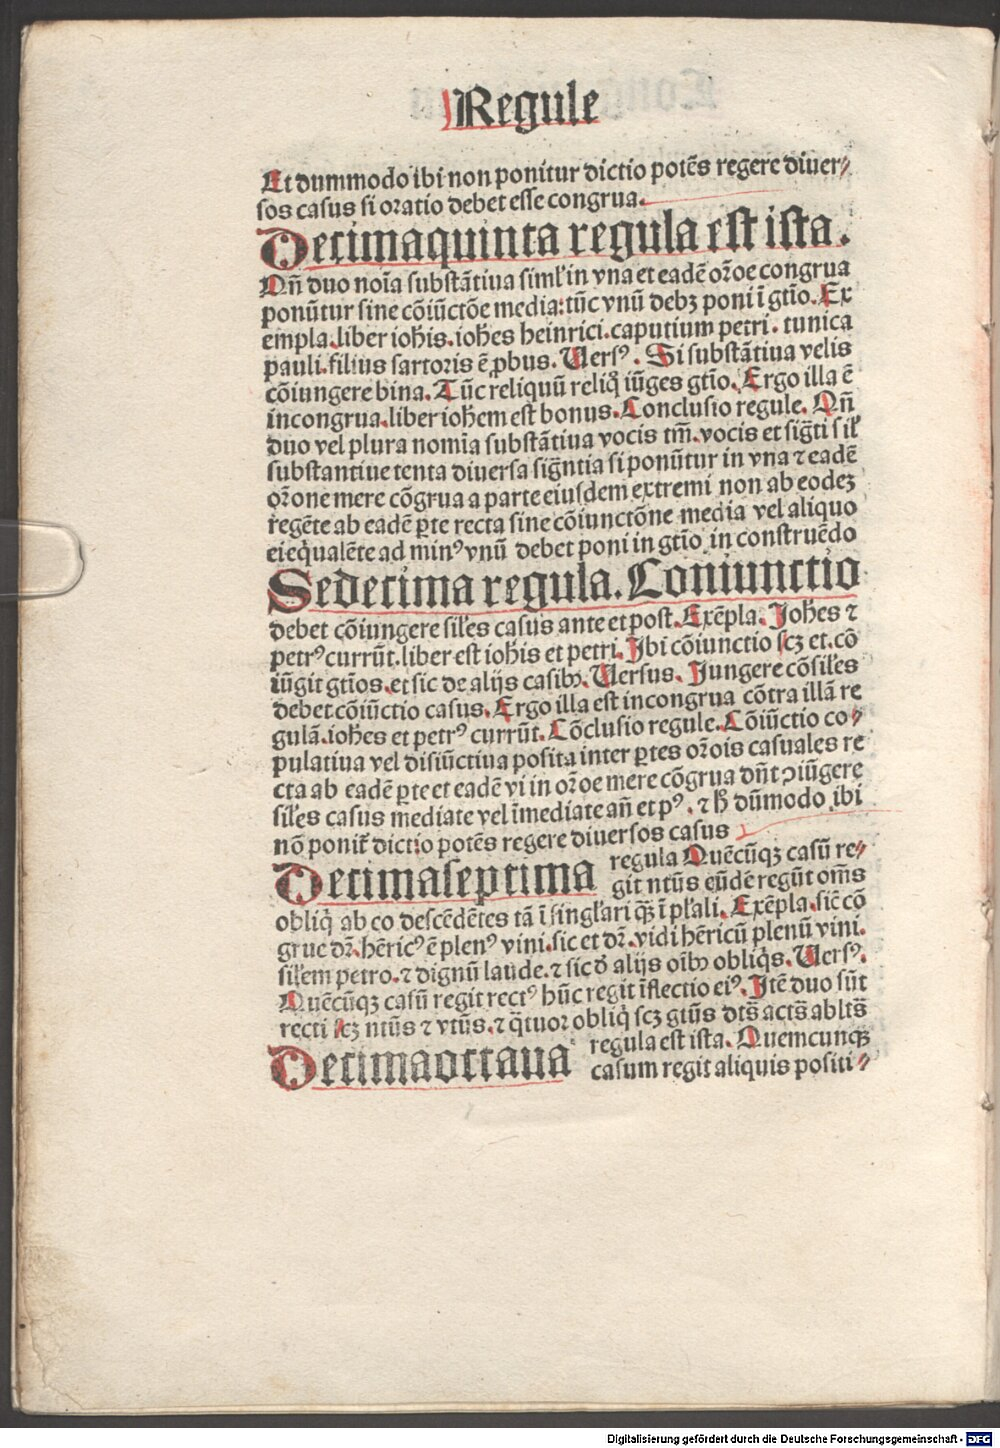 Regule
Et dummodo ibi non ponitur dictio potēs regere diuer⸗
sos casus si oratio debet esse congrua.
Decimaquinta regula est ista.
Qn̄ duo noīa substātiua siml' in vna et eadē orōe congrua
ponūtur sine cōiūctōe media: tūc vnū debꝫ poni ī gtīo. Ex
empla. liber ioħis. ioħes heinrici. caputium petri. tunica
pauli. filius sartoris ē ꝓbus. Versꝰ. Si substātiua velis
cōiungere bina. Tūc reliquū reliq̄ iūges gtīo. Ergo illa ē
incongrua. liber ioħem est bonus. Conclusio regule. Qn̄
duo vel plura nomīa substātiua vocis tm̄. vocis et siḡti sil'
substantiue tenta diuersa siḡntia si ponūtur in vna ⁊ eadē
orōne mere cōgrua a parte eiusdem extremi non ab eodeꝫ
regēte ab eadē ꝑte recta sine cōiunctōne media vel aliquo
ei eq̇ualēte ad minꝰ vnū debet poni in gtīo in construēdo
Sedecima regula. Coniunctio
debet cōiungere sil'es casus ante et post. Exēpla. Johēs ⁊
petrꝰ currūt. liber est ioħis et petri. Ibi cōiunctio scꝫ et. cō
iūgit gtīos. et sic de alijs casibꝫ. Versus. Jungere cōsil'es
debet cōiūctio casus. Ergo illa est incongrua cōtra illā re
gulā. ioħes et petrꝰ currūt. Cōclusio regule. Cōiūctio co⸗
pulatiua vel disiūctiua posita inter ꝑtes orōis casuales re
cta ab eadē ꝑte et eadē vi in orōe mere cōgrua dn̄t ꝯiūgere
sil'es casus mediate vel īmediate an̄ et pꝰ. ⁊ ħ dūmodo ibi
nō ponit̄ dictio potēs regere diuersos casus
Decimaseptima regula Quēcūqꝫ casū re⸗
git ntūs eūdē regūt om̄s
obliq̇ ab eo descēdētes tā ī singl'ari qꝫ̄ ī pl'ali. Exēpla. sic̄ cō
grue dr̄. hēricꝰ ē plenꝰ vini. sic et dr̄. vidi hēricū plenū vini.
sil'em petro. ⁊ dignū laude. ⁊ sic đ alijs oībꝫ obliq̇s. Versꝰ.
Quēcūqꝫ casū regit rectꝰ hūc regit īflectio eiꝰ. Itē duo sūt
recti scꝫ ntūs ⁊ vtūs. ⁊ q̄tuor obliq̇ scꝫ gtūs dts̄ acts̄ ablts̄
Decimaoctaua regula est ista. Quemcunqꝫ
casum regit aliquis positi⸗
Digitalisierung gefördert durch die Deutsche Forschungsgemeinschaft - DFG